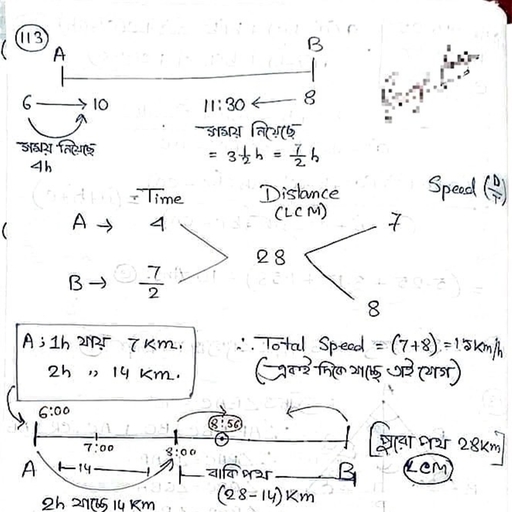 113
A B
6 → 10 11:30 ← 8
সময় নিয়েছে
4h
সময় নিয়েছে
= 3 1/2 h = 7/2 h
Time Distance (LCM) Speed (D/T)
A → 4 7
28
B → 7/2 8
A ; 1h যায় 7 Km.
2h " 14 Km.
∴ Total Speed = (7+8) = 15Km/h
(একই দিকে যাচ্ছে তাই যোগ)
6:00 8:56
7:00 8:00
[পুরো পথ 28Km]
(LCM)
A 14 বাকি পথ B
2h যাচ্ছে 14 Km (28-14) Km